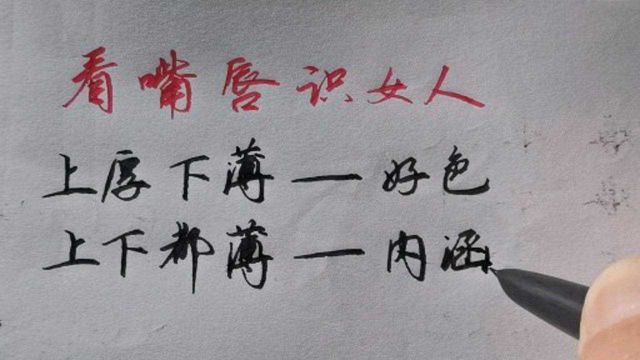 看嘴唇识女人
上厚下薄一好色
上下都薄一内涵